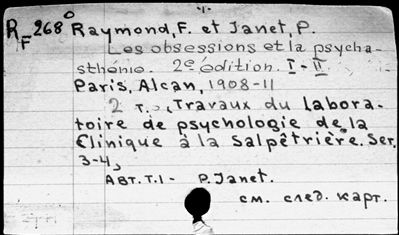 -1-
R_F 268° Raymond, F. et Janet, P.
Les obsessions et la psycha-
sthénie. 2e édition. I-II
Paris, Alcan, 1908-11
2 т., (Travaux du labora-
toire de psychologie de la
Clinique à la Salpêtrière. Ser.
3-4)
Авт. т. I - P. Janet.
см. след. карт.